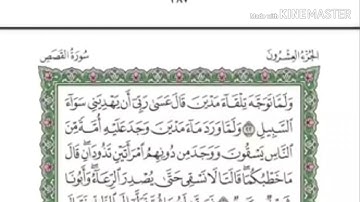 ٣٨٧
Made with KINEMASTER
الجزء العشرون
سورة القصص
وَلَمَّا تَوَجَّهَ تِلْقَآءَ مَدْيَنَ قَالَ عَسَىٰ رَبِّىٓ أَن يَهْدِيَنِى سَوَآءَ
ٱلسَّبِيلِ ٢٢ وَلَمَّا وَرَدَ مَآءَ مَدْيَنَ وَجَدَ عَلَيْهِ أُمَّةً مِّنَ
ٱلنَّاسِ يَسْقُونَ وَوَجَدَ مِن دُونِهِمُ ٱمْرَأَتَيْنِ تَذُودَانِ قَالَ
مَا خَطْبُكُمَا قَالَتَا لَا نَسْقِى حَتَّىٰ يُصْدِرَ ٱلرِّعَآءُ وَأَبُونَا